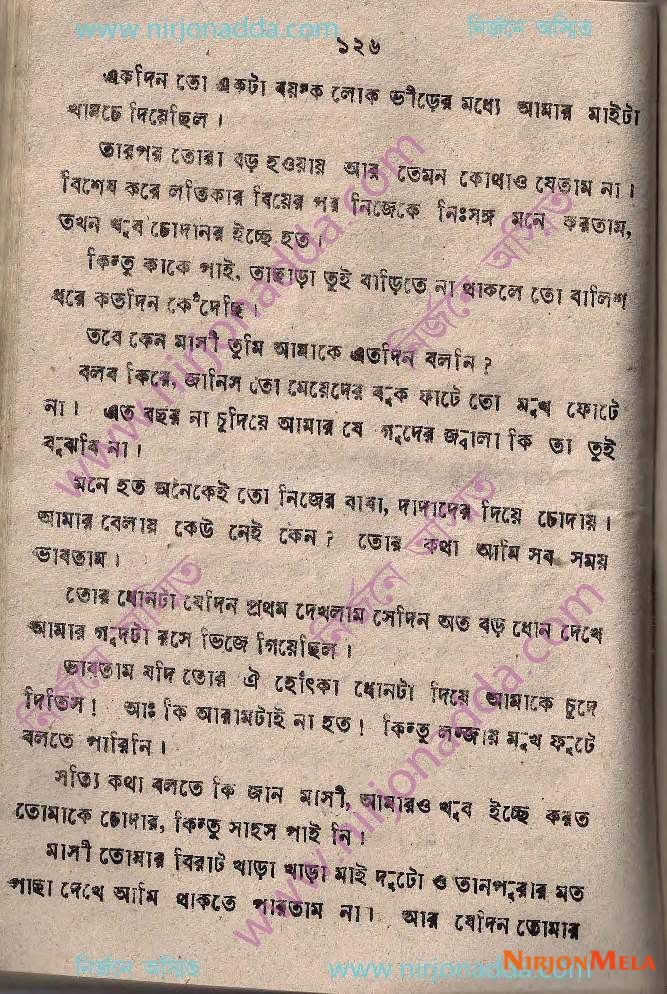 www.nirjonadda.com নির্জনে অস্মিত
১২৬
একদিন তো একটা বয়স্ক লোক ভীড়ের মধ্যে আমার মাইটা
খামচে দিয়েছিল।
তারপর তোরা বড় হওয়ায় আর তেমন কোথাও যেতাম না।
বিশেষ করে লতিকার বিয়ের পর নিজেকে নিঃসঙ্গ মনে করতাম,
তখন খুব চোদানর ইচ্ছে হত।
কিন্তু কাকে পাই, তাছাড়া তুই বাড়িতে না থাকলে তো বালিশ
ধরে কতদিন কেঁদেছি।
তবে কেন মাসী তুমি আমাকে এতদিন বলনি?
বলব কিরে, জানিস তো মেয়েদের বুক ফাটে তো মুখ ফোটে
না। এত বছর না চুদিয়ে আমার যে গুদের জ্বালা কি তা তুই
বুঝবি না।
মনে হত অনেকেই তো নিজের বাবা, দাদাদের দিয়ে চোদায়।
আমার বেলায় কেউ নেই কেন? তোর কথা আমি সব সময়
ভাবতাম।
তোর ধোনটা যেদিন প্রথম দেখলাম সেদিন অত বড় ধোন দেখে
আমার গুদটা রসে ভিজে গিয়েছিল।
ভাবতাম যদি তোর ঐ হোঁৎকা ধোনটা দিয়ে আমাকে চুদে
দিতিস! আঃ কি আরামটাই না হত! কিন্তু লজ্জায় মুখ ফুটে
বলতে পারিনি।
সত্যি কথা বলতে কি জান মাসী, আমারও খুব ইচ্ছে করত
তোমাকে চোদার, কিন্তু সাহস পাই নি।
মাসী তোমার বিরাট খাড়া খাড়া মাই দুটো ও তানপুরার মত
পাছা দেখে আমি থাকতে পারতাম না। আর যেদিন তোমার
নির্জনে অস্মিত www.nirjonadda.com
NIRJONMELA